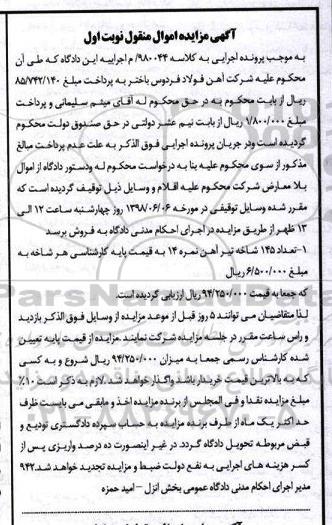 آگهی مزایده اموال منقول نوبت اول
به موجب پرونده اجرایی به کلاسه ۹۸۰۰۴۴/م اجراییه این دادگاه که طی آن
محکوم علیه شرکت آهن فولاد فردوس باختر به پرداخت مبلغ ۸۵/۷۴۲/۱۴۰
ریال از بابت محکوم به در حق محکوم له آقای میثم سلیمانی و پرداخت
مبلغ ۱/۸۰۰/۰۰۰ ریال از بابت نیم عشر دولتی در حق صندوق دولت محکوم
گردیده است ودر جریان پرونده اجرایی فوق الذکر به علت عدم پرداخت مبالغ
مذکور از سوی محکوم علیه بنا به درخواست محکوم له ودستور دادگاه از اموال
بلا معارض شرکت محکوم علیه اقلام و وسایل ذیل توقیف گردیده است که
مقرر شده وسایل توقیفی در مورخه ۱۳۹۸/۰۶/۰۶ روز چهارشنبه ساعت ۱۲ الی
۱۳ ظهر از طریق مزایده در اجرای احکام مدنی دادگاه به فروش برسد
۱-تعداد ۱۴۵ شاخه تیر آهن نمره ۱۴ به قیمت پایه کارشناسی هر شاخه به
مبلغ ۶/۵۰۰/۰۰۰ ریال
که جمعا به قیمت ۹۴/۲۵۰/۰۰۰ ریال ارزیابی گردیده است.
لذا متقاضیان می توانند ۵ روز قبل از موعد مزایده از وسایل فوق الذکر بازدید
و راس ساعت مقرر در جلسه مزایده شرکت نمایند .مزایده از قیمت پایه تعیین
شده کارشناس رسمی جمعا به میزان ۹۴/۲۵۰/۰۰۰ ریال شروع و به کسی
که به بالاترین قیمت خریدار باشد واگذار خواهد شد .لازم به ذکر است ۱۰٪
مبلغ مزایده نقدا و فی المجلس از برنده مزایده اخذ و مابقی می بایست ظرف
حداکثر یک ماه از طرف برنده مزایده به حساب سپرده دادگستری تودیع و
قبض مربوطه تحویل دادگاه گردد. در غیر اینصورت ده درصد واریزی پس از
کسر هزینه های اجرایی به نفع دولت ضبط و مزایده تجدید خواهد شد.۹۴۲
مدیر اجرای احکام مدنی دادگاه عمومی بخش انزل – امید حمزه